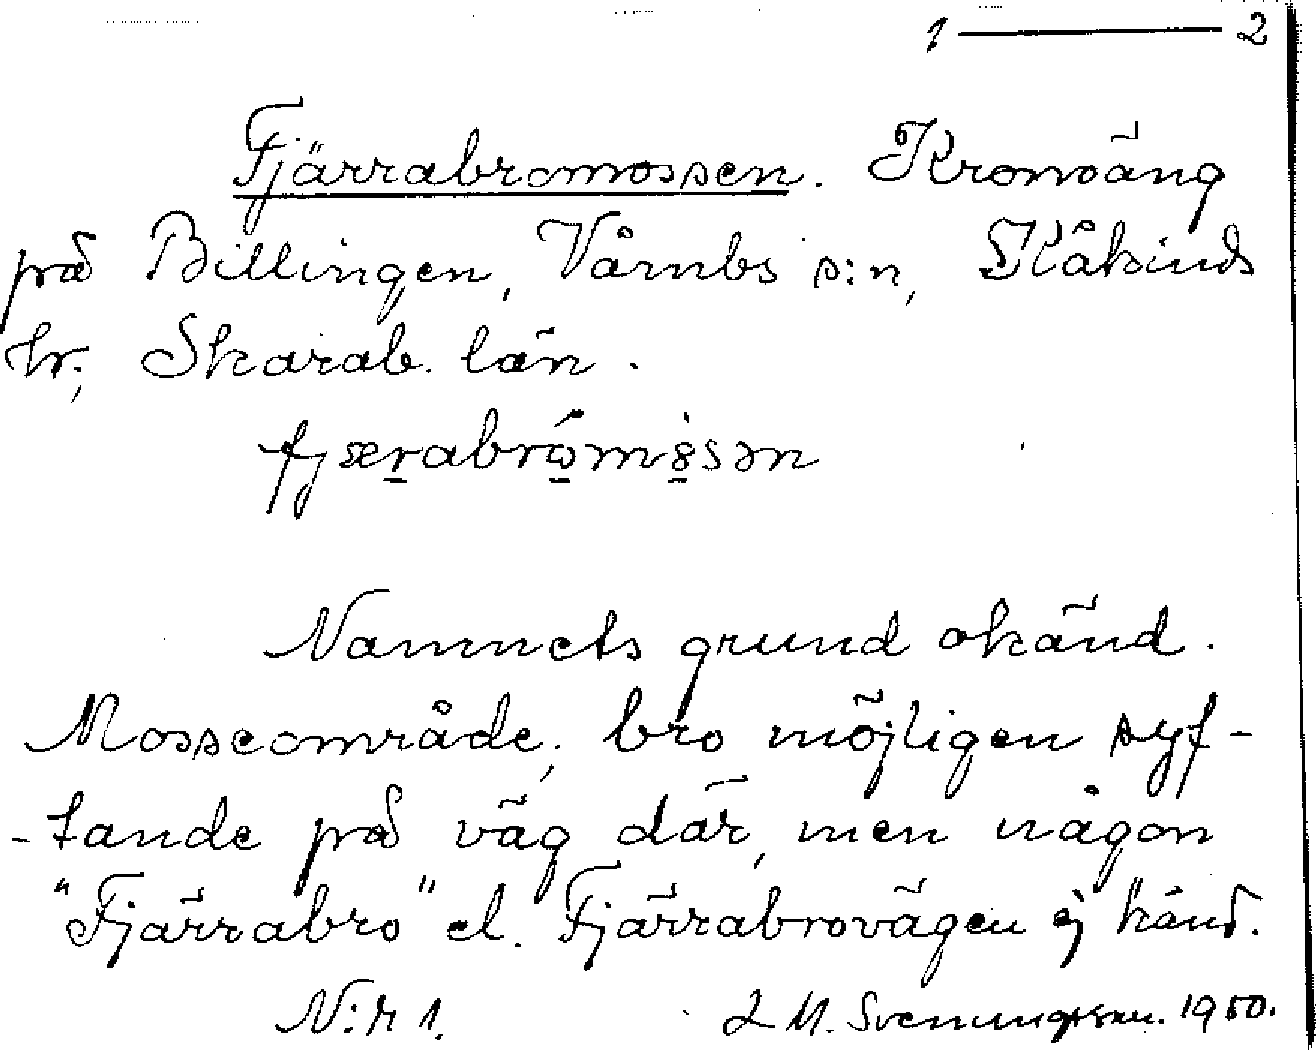 1 — 2
Fjärrabromossen. Kronoäng
på Billingen, Våmbs s:n, Kåkinds
hr., Skarab. län.
Namnets grund okänd.
Mosseområde, bro möjligen syf-
-tande på väg där, men någon
"Fjärrabro" el. Fjärrabrovägen ej känd.
N:r 1. L M. Svenungsson. 1950.